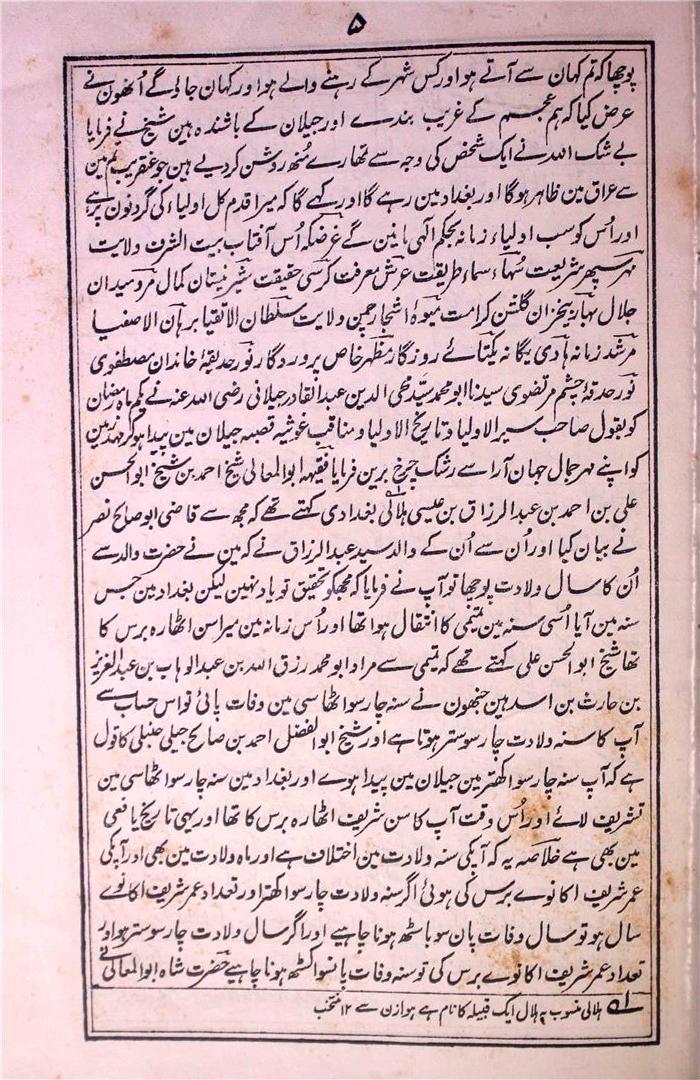 ۵
پوچھا کہ تم کہان سے آتے ہو اور کس شہر کے رہنے والے ہو اور کہان جاؤگے اُنھون نے
عرض کیا کہ ہم عجم کے غریب بندے اور جیلان کے باشندہ ہین شیخ نے فرمایا
بے شک اللہ نے ایک شخص کی وجہ سے تمھارے مُنھ روشن کردیے ہین جو عنقریب تم مین
سے عراق مین ظاہر ہوگا اور بغداد مین رہے گا اور کہے گا کہ میرا قدم کل اولیاء کی گردنون پر ہے
اور اُس کو سب اولیاء زمانہ بحکم الٰہی مانین گے غرضکہ اُس آفتاب بیت الشرف ولایت
مہر سپہر شریعت سُہاء سماء طریقت عرش معرفت کرسی حقیقت شیر نیستان کمال مرد میدان
جلال بہار بیخزان گلشن کرامت میوۂ اشجار چمن ولایت سلطان الاتقیا برہان الاصفیا
مرشد زمانہ ہادی یگانہ یکتائے روزگار مظہر خاص پروردگار نور حدیقۂ خاندان مصطفوی
نور حدقۂ چشم مرتضوی سیدنا ابو محمد سیّد محی الدین عبدالقادر جیلانی رضی اللہ عنہ نے یکم ماہ رمضان
کو بقول صاحب سیر الاولیا و تاریخ الاولیا و مناقب غوثیہ قصبہ جیلان مین پیدا ہو کر مہد زمین
کو اپنے مہر جمال جہان آرا سے رشک چرخ برین فرمایا فقیہ ابو المعالی شیخ احمد بن شیخ ابو الحسن
علی بن احمد بن عبد الرزاق بن عیسی ہلالیؔ بغدادی کہتے تھے کہ مجھ سے قاضی ابو صالح نصر
نے بیان کیا اور اُن سے اُن کے والد سید عبد الرزاق نے کہ مین نے حضرت والد سے
اُن کا سال ولادت پوچھا تو آپ نے فرمایا کہ مجھکو تحقیق تو یاد نہین لیکن بغداد مین جس
سنہ مین آیا اُسی سنہ مین تمیمی کا انتقال ہوا تھا اور اُس زمانہ مین میرا سن اٹھارہ برس کا
تھا شیخ ابو الحسن علی کہتے تھے کہ تمیمی سے مراد ابو محمد رزق اللہ بن عبد الوہاب بن عبد العزیز
بن حارث بن اسد ہین جنھون نے سنہ چار سو اٹھاسی مین وفات پائی تو اس حساب سے
آپ کا سنہ ولادت چار سو ستر ہوتا ہے اور شیخ ابو الفضل احمد بن صالح جیلی حنبلی کا قول
ہے کہ آپ سنہ چار سو اکھتر مین جیلان مین پیدا ہوے اور بغداد مین سنہ چار سو اٹھاسی مین
تشریف لائے اور اُس وقت آپ کا سن شریف اٹھارہ برس کا تھا اور یہی تاریخ یافعی
مین بھی ہے خلاصہ یہ کہ آپکی سنہ ولادت مین اختلاف ہے اور ماہ ولادت مین بھی اور آپکی
عمر شریف اکانوے برس کی ہوئی اگر سنہ ولادت چار سو اکھتر اور تعداد عمر شریف اکانوے
سال ہو تو سال وفات پان سو باسٹھ ہونا چاہیے اور اگر سال ولادت چار سو ستر ہو اور
تعداد عمر شریف اکانوے برس کی تو سنہ وفات پانسو اکسٹھ ہونا چاہیے حضرت شاہ ابو المعالی
۱؎ ہلالی منسوب بہ ہلال ایک قبیلہ کا نام ہے ہوازن سے ۱۲ منتخب